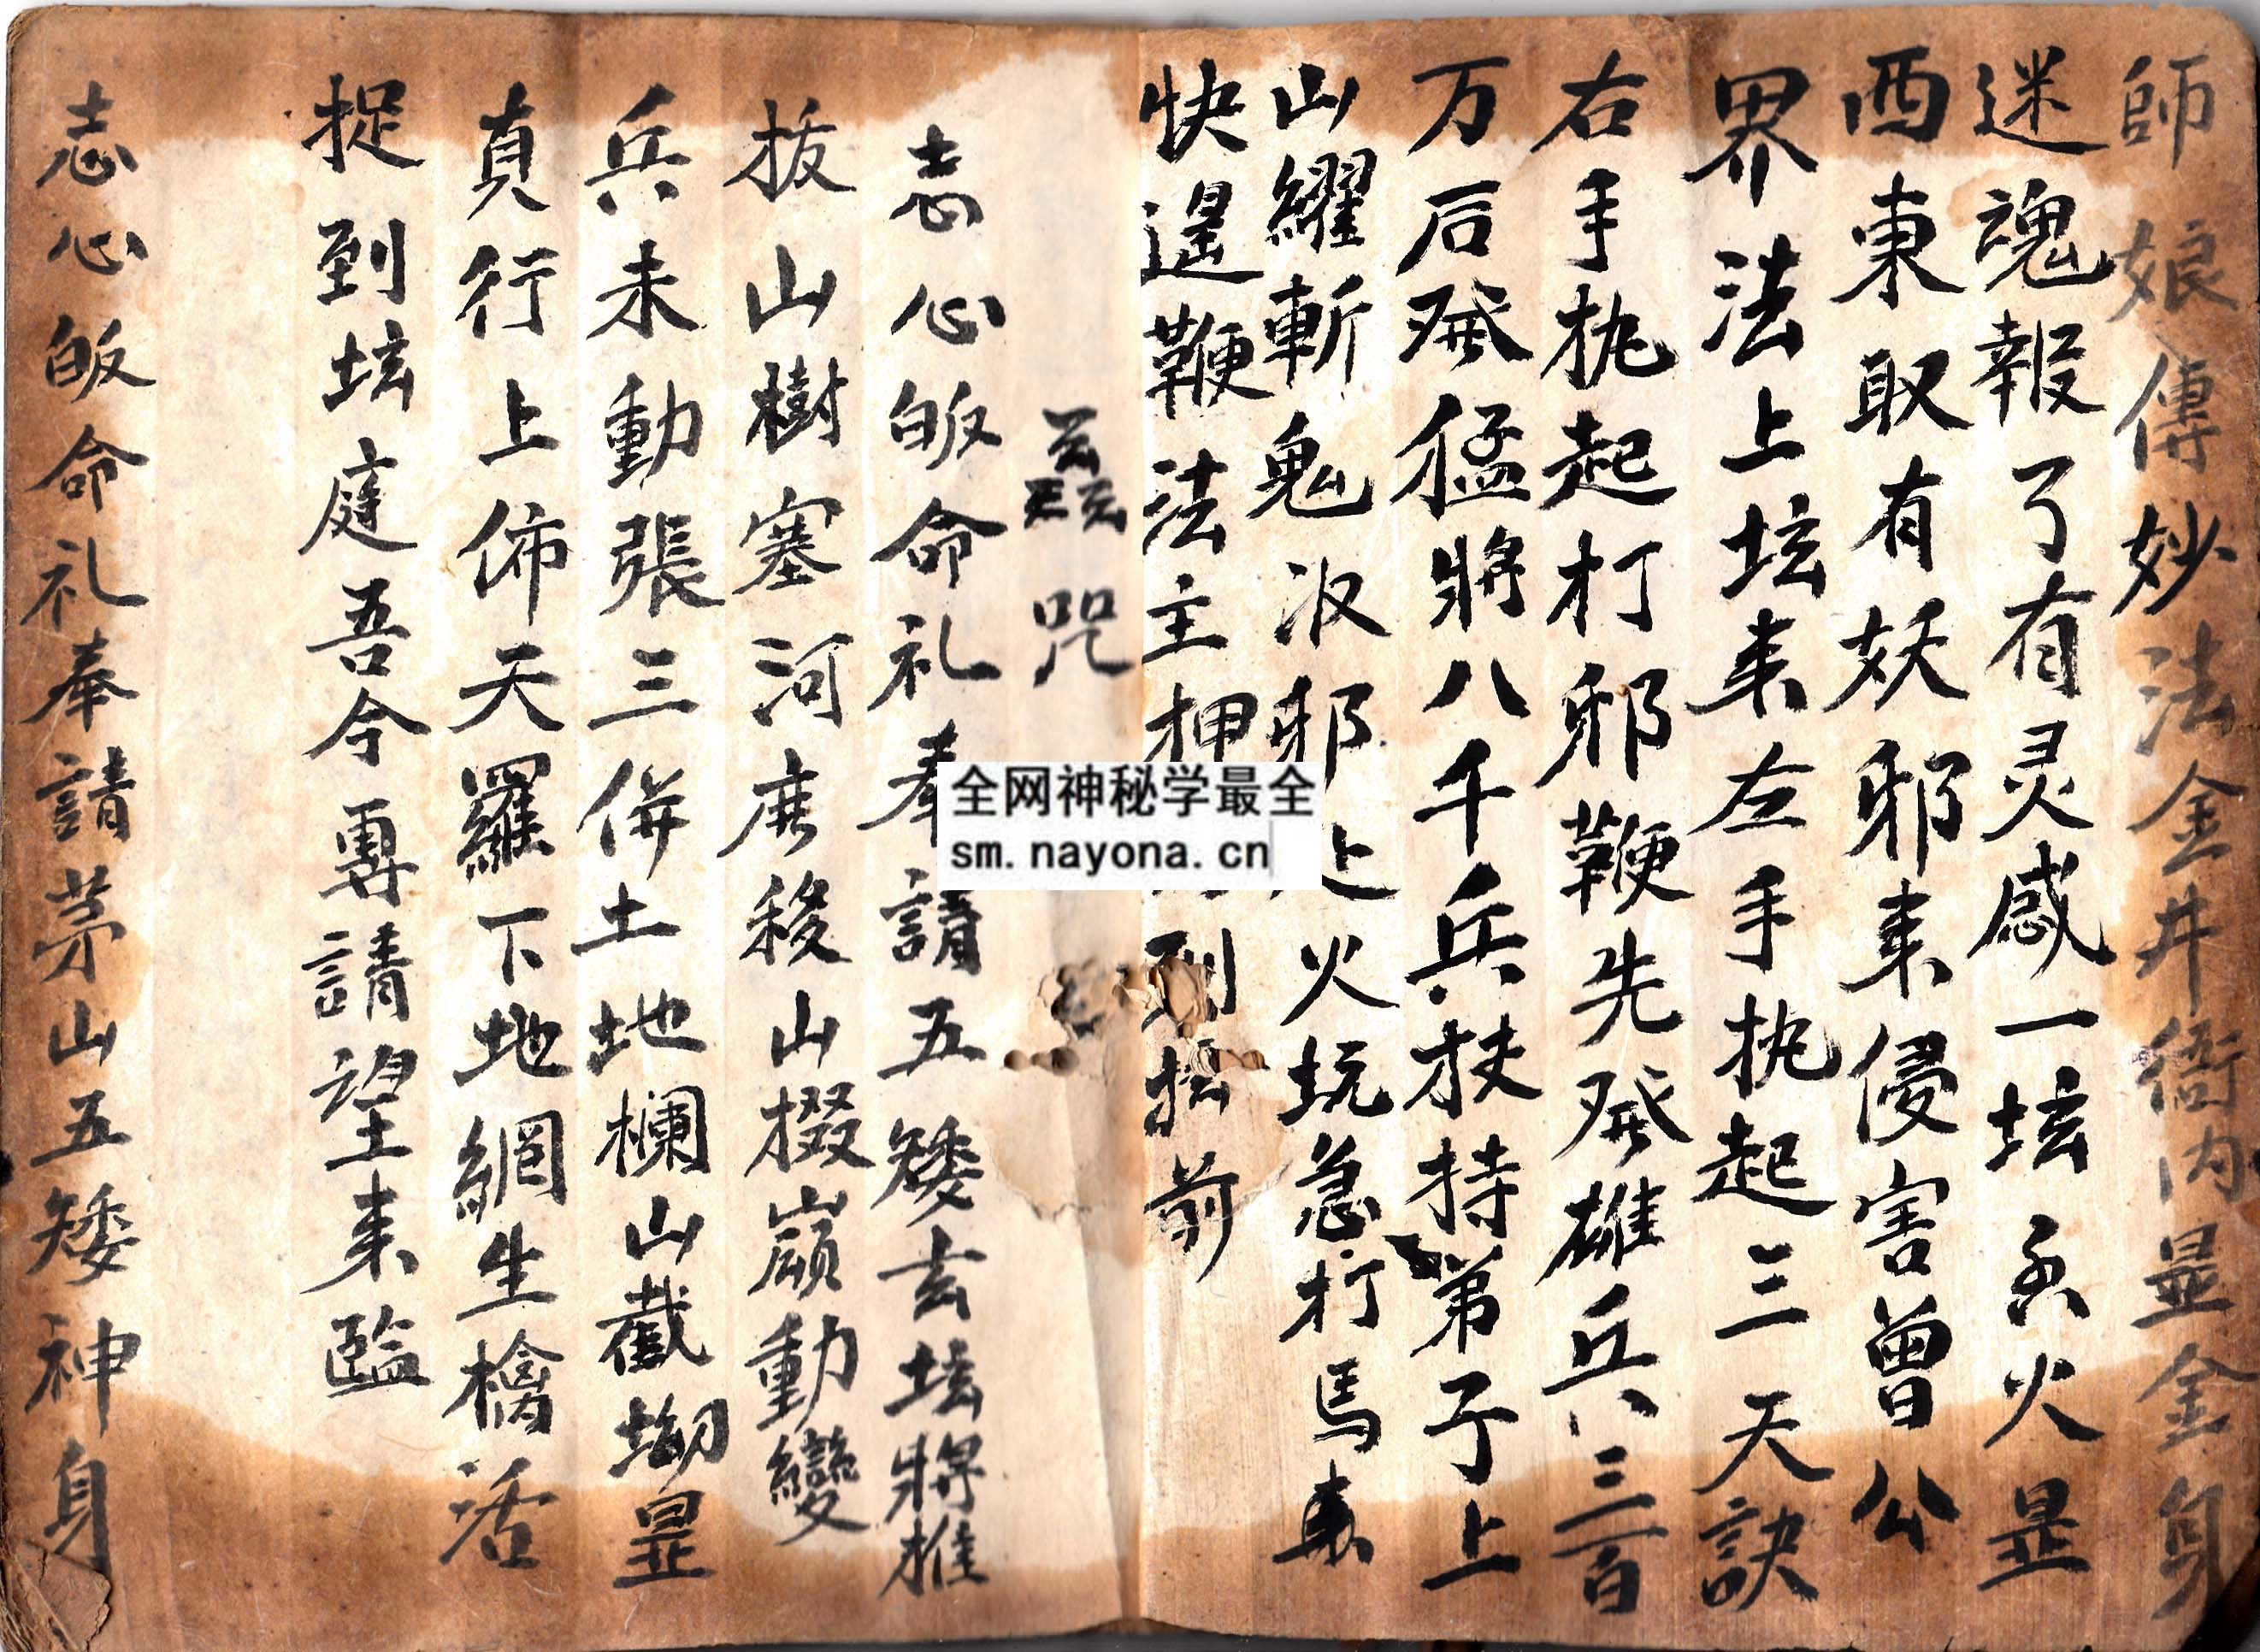 師娘傳妙法金井衙内显金身
迷魂報了有灵感一坛香火显
西東取有妖邪来侵害曾公
界法上坛来左手执起三天訣
右手执起打邪鞭先発雄兵三百
万后発猛將八千兵扶持弟子上
山耀斬鬼邪上火坑急打馬来
快遑鞭法主押到坛前
咒
志心皈命礼奉請五矮玄坛將推
拔山樹塞河庙移山掇嶺動變
兵未動張三併土地欄山截坳显
真行上佈天羅下地網生擒活
捉到坛庭吾今專請望来臨
志心皈命礼奉請茅山五矮神身
全网神秘学最全
sm.nayona.cn